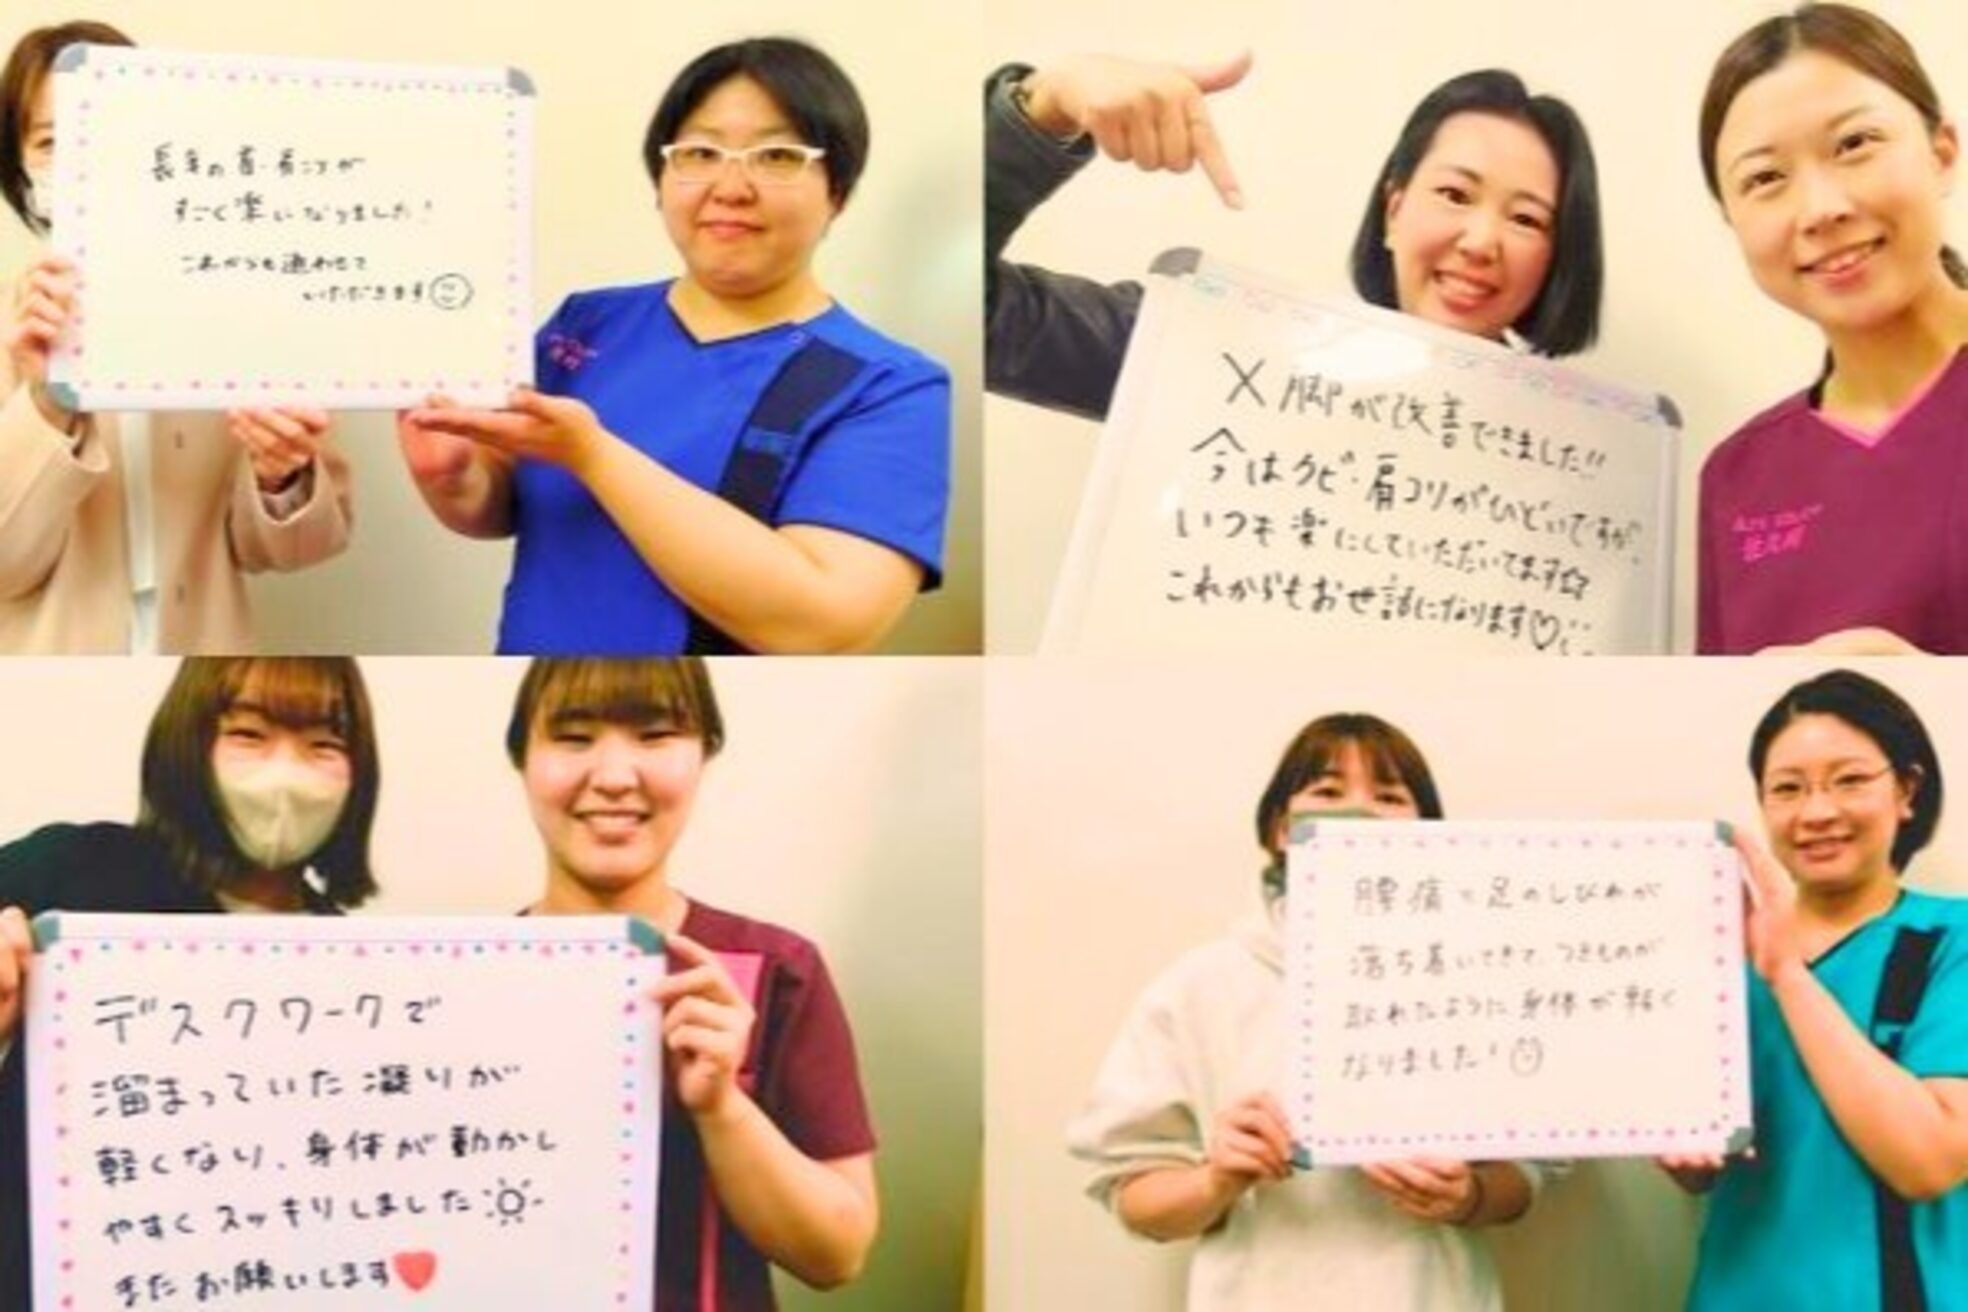 長年の首・肩こりが
すごく楽になりました!
これからも通わせて
いただきます
X脚が改善できました!!
今はクビ・肩コリがひどいですが、
いつも楽にしていただいてます☆
これからもお世話になります♡
デスクワークで
溜まっていた凝りが
軽くなり、身体が動かし
やすくスッキリしました
またお願いします
腰痛と足のしびれが
落ち着いてきて、つきものが
取れたように身体が軽く
なりました!